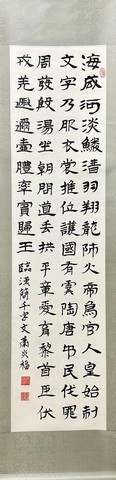 海咸河淡鱗潛羽翔龍師火帝鳥官人皇始制
文字乃服衣裳推位讓國有虞陶唐弔民伐罪
周發殷湯坐朝問道垂拱平章愛育黎首臣伏
戎羌遐邇壹體率賓歸王 臨漢簡千字文 蕭炎福